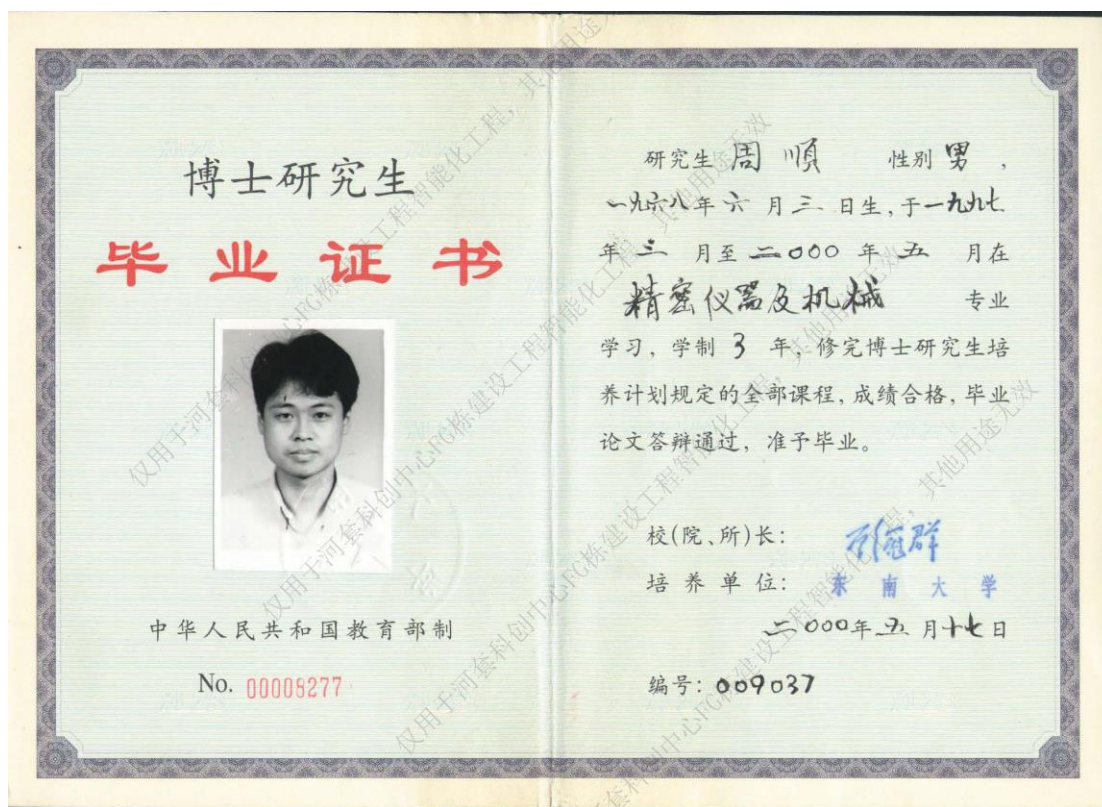 博士研究生
毕业证书
中华人民共和国教育部制
No. 00008277
研究生 周顺 性别 男，
一九六八年六月三日生，于一九九七
年三月至二000年五月在
精密仪器及机械 专业
学习，学制 3 年，修完博士研究生培
养计划规定的全部课程，成绩合格，毕业
论文答辩通过，准予毕业。
校(院、所)长：
培养单位： 东南大学
二000年五月十七日
编号：009037
仅用于河套科创中心FG栋建设工程智能化工程，其他用途无效